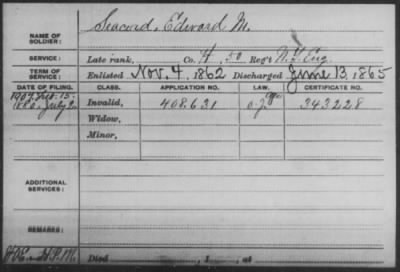 Seacord, Edward M.
NAME OF SOLDIER:
SERVICE: Late rank, Co. H, 50 Reg't N.Y. Eng.
TERM OF SERVICE: Enlisted Nov. 4, 1862 Discharged June 13, 1865
DATE OF FILING. CLASS. APPLICATION NO. LAW. CERTIFICATE NO.
1907 Feb. 15 age
1880, July 2 Invalid, 408.631 343228
Widow,
Minor,
ADDITIONAL SERVICES:
REMARKS:
Died , 1 , at